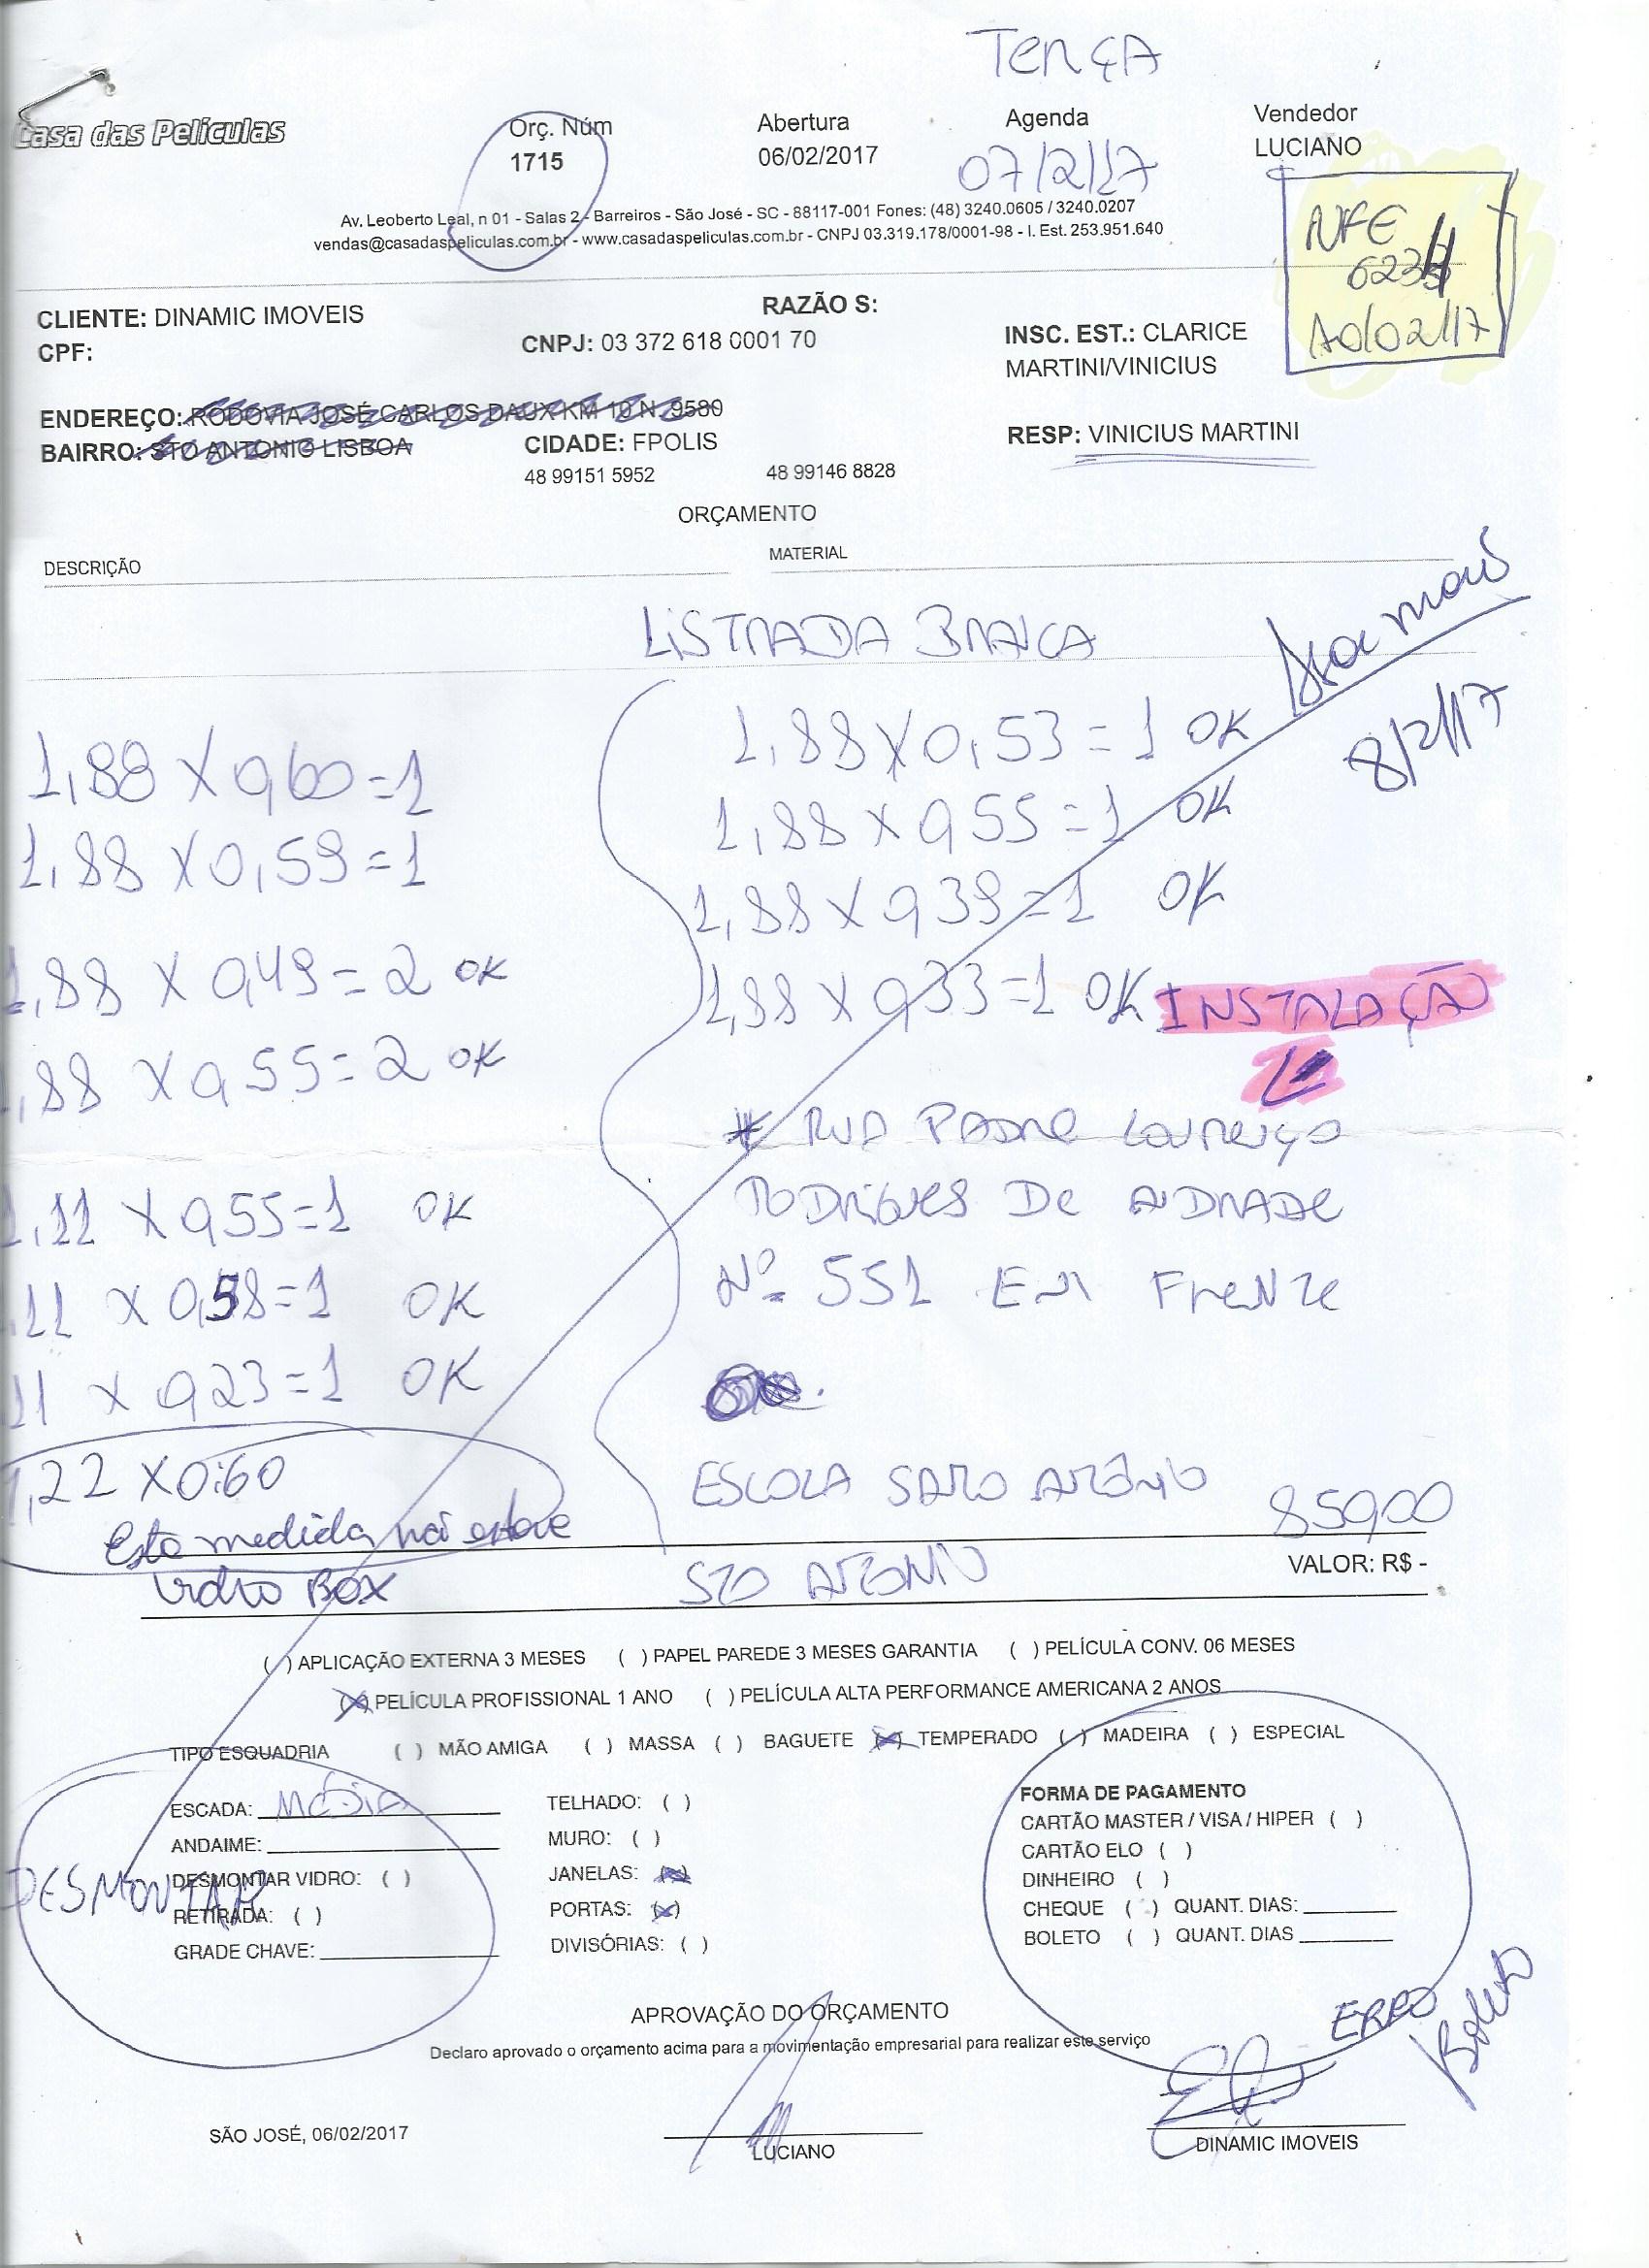 TERÇA
Casa das Películas
Orç. Núm
1715
Abertura
06/02/2017
Agenda
07/2/17
Vendedor
LUCIANO
Av. Leoberto Leal, n 01 - Salas 2 - Barreiros - São José - SC - 88117-001 Fones: (48) 3240.0605 / 3240.0207
vendas@casadaspeliculas.com.br - www.casadaspeliculas.com.br - CNPJ 03.319.178/0001-98 - I. Est. 253.951.640
NFE
6234
10/02/17
CLIENTE: DINAMIC IMOVEIS
CPF:
RAZÃO S:
CNPJ: 03 372 618 0001 70
INSC. EST.: CLARICE
MARTINI/VINICIUS
ENDEREÇO: RODOVIA JOSÉ CARLOS DAUX KM 10 N. 9580
BAIRRO: STO ANTONIO LISBOA
CIDADE: FPOLIS
RESP: VINICIUS MARTINI
48 99151 5952
48 99146 8828
ORÇAMENTO
DESCRIÇÃO
MATERIAL
LISTRADA BRANCA
8/2/17
1,88 X 0,60 = 1
1,88 X 0,59 = 1
1,88 X 0,49 = 2 OK
1,88 X 0,55 = 2 OK
1,11 X 0,55 = 1 OK
,11 X 0,58 = 1 OK
11 X 0,23 = 1 OK
1,22 X 0:60
Esta medida não esteve
vidro BOX
1,88 X 0,53 = 1 OK
1,88 X 0,55 = 1 OK
1,88 X 0,39 = 1 OK
1,88 X 0,33 = 1 OK
INSTALAÇÃO
* RUA PADRE LOURENÇO
RODRIGUES DE ANDRADE
Nº 551 EM FRENTE
ESCOLA SANTO ANTÔNIO
STO ANTONIO
850,00
VALOR: R$ -
( ) APLICAÇÃO EXTERNA 3 MESES ( ) PAPEL PAREDE 3 MESES GARANTIA ( ) PELÍCULA CONV. 06 MESES
(X) PELÍCULA PROFISSIONAL 1 ANO ( ) PELÍCULA ALTA PERFORMANCE AMERICANA 2 ANOS
TIPO ESQUADRIA ( ) MÃO AMIGA ( ) MASSA ( ) BAGUETE (X) TEMPERADO ( ) MADEIRA ( ) ESPECIAL
ESCADA: MÉDIA
ANDAIME:
DESMONTAR VIDRO: ( )
DESMONTAR
RETIRADA: ( )
GRADE CHAVE:
TELHADO: ( )
MURO: ( )
JANELAS: (X)
PORTAS: (X)
DIVISÓRIAS: ( )
FORMA DE PAGAMENTO
CARTÃO MASTER / VISA / HIPER ( )
CARTÃO ELO ( )
DINHEIRO ( )
CHEQUE ( ) QUANT. DIAS:
BOLETO ( ) QUANT. DIAS
ERRO
Boleto
APROVAÇÃO DO ORÇAMENTO
Declaro aprovado o orçamento acima para a movimentação empresarial para realizar este serviço
SÃO JOSÉ, 06/02/2017
LUCIANO
DINAMIC IMOVEIS